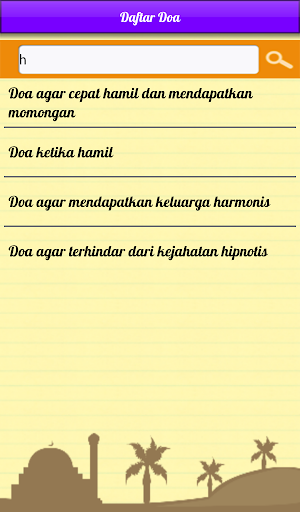 Daftar Doa
h
Doa agar cepat hamil dan mendapatkan
momongan
Doa ketika hamil
Doa agar mendapatkan keluarga harmonis
Doa agar terhindar dari kejahatan hipnotis